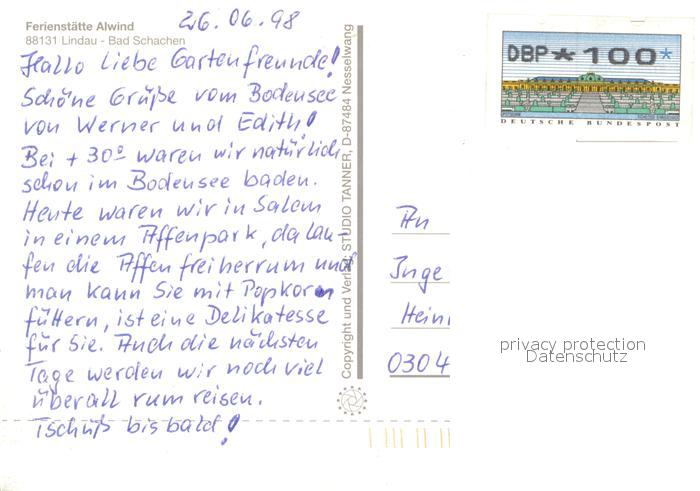 26.06.98
Ferienstätte Alwind
88131 Lindau - Bad Schachen
Hallo liebe Gartenfreunde!
Schöne Grüße vom Bodensee
von Werner und Edith!
Bei + 30° waren wir natürlich
schon im Bodensee baden.
Heute waren wir in Salem
in einem Affenpark, da lau-
fen die Affen frei herrum und
man kann Sie mit Popkorn
füttern, ist eine Delikatesse
für Sie. Auch die nächsten
Tage werden wir noch viel
überall rumreisen.
Tschüß bis bald!
Copyright und Verlag: STUDIO TANNER, D-87484 Nesselwang
DBP * 100 *
DEUTSCHE BUNDESPOST
An
Inge
Hein
0304
privacy protection
Datenschutz